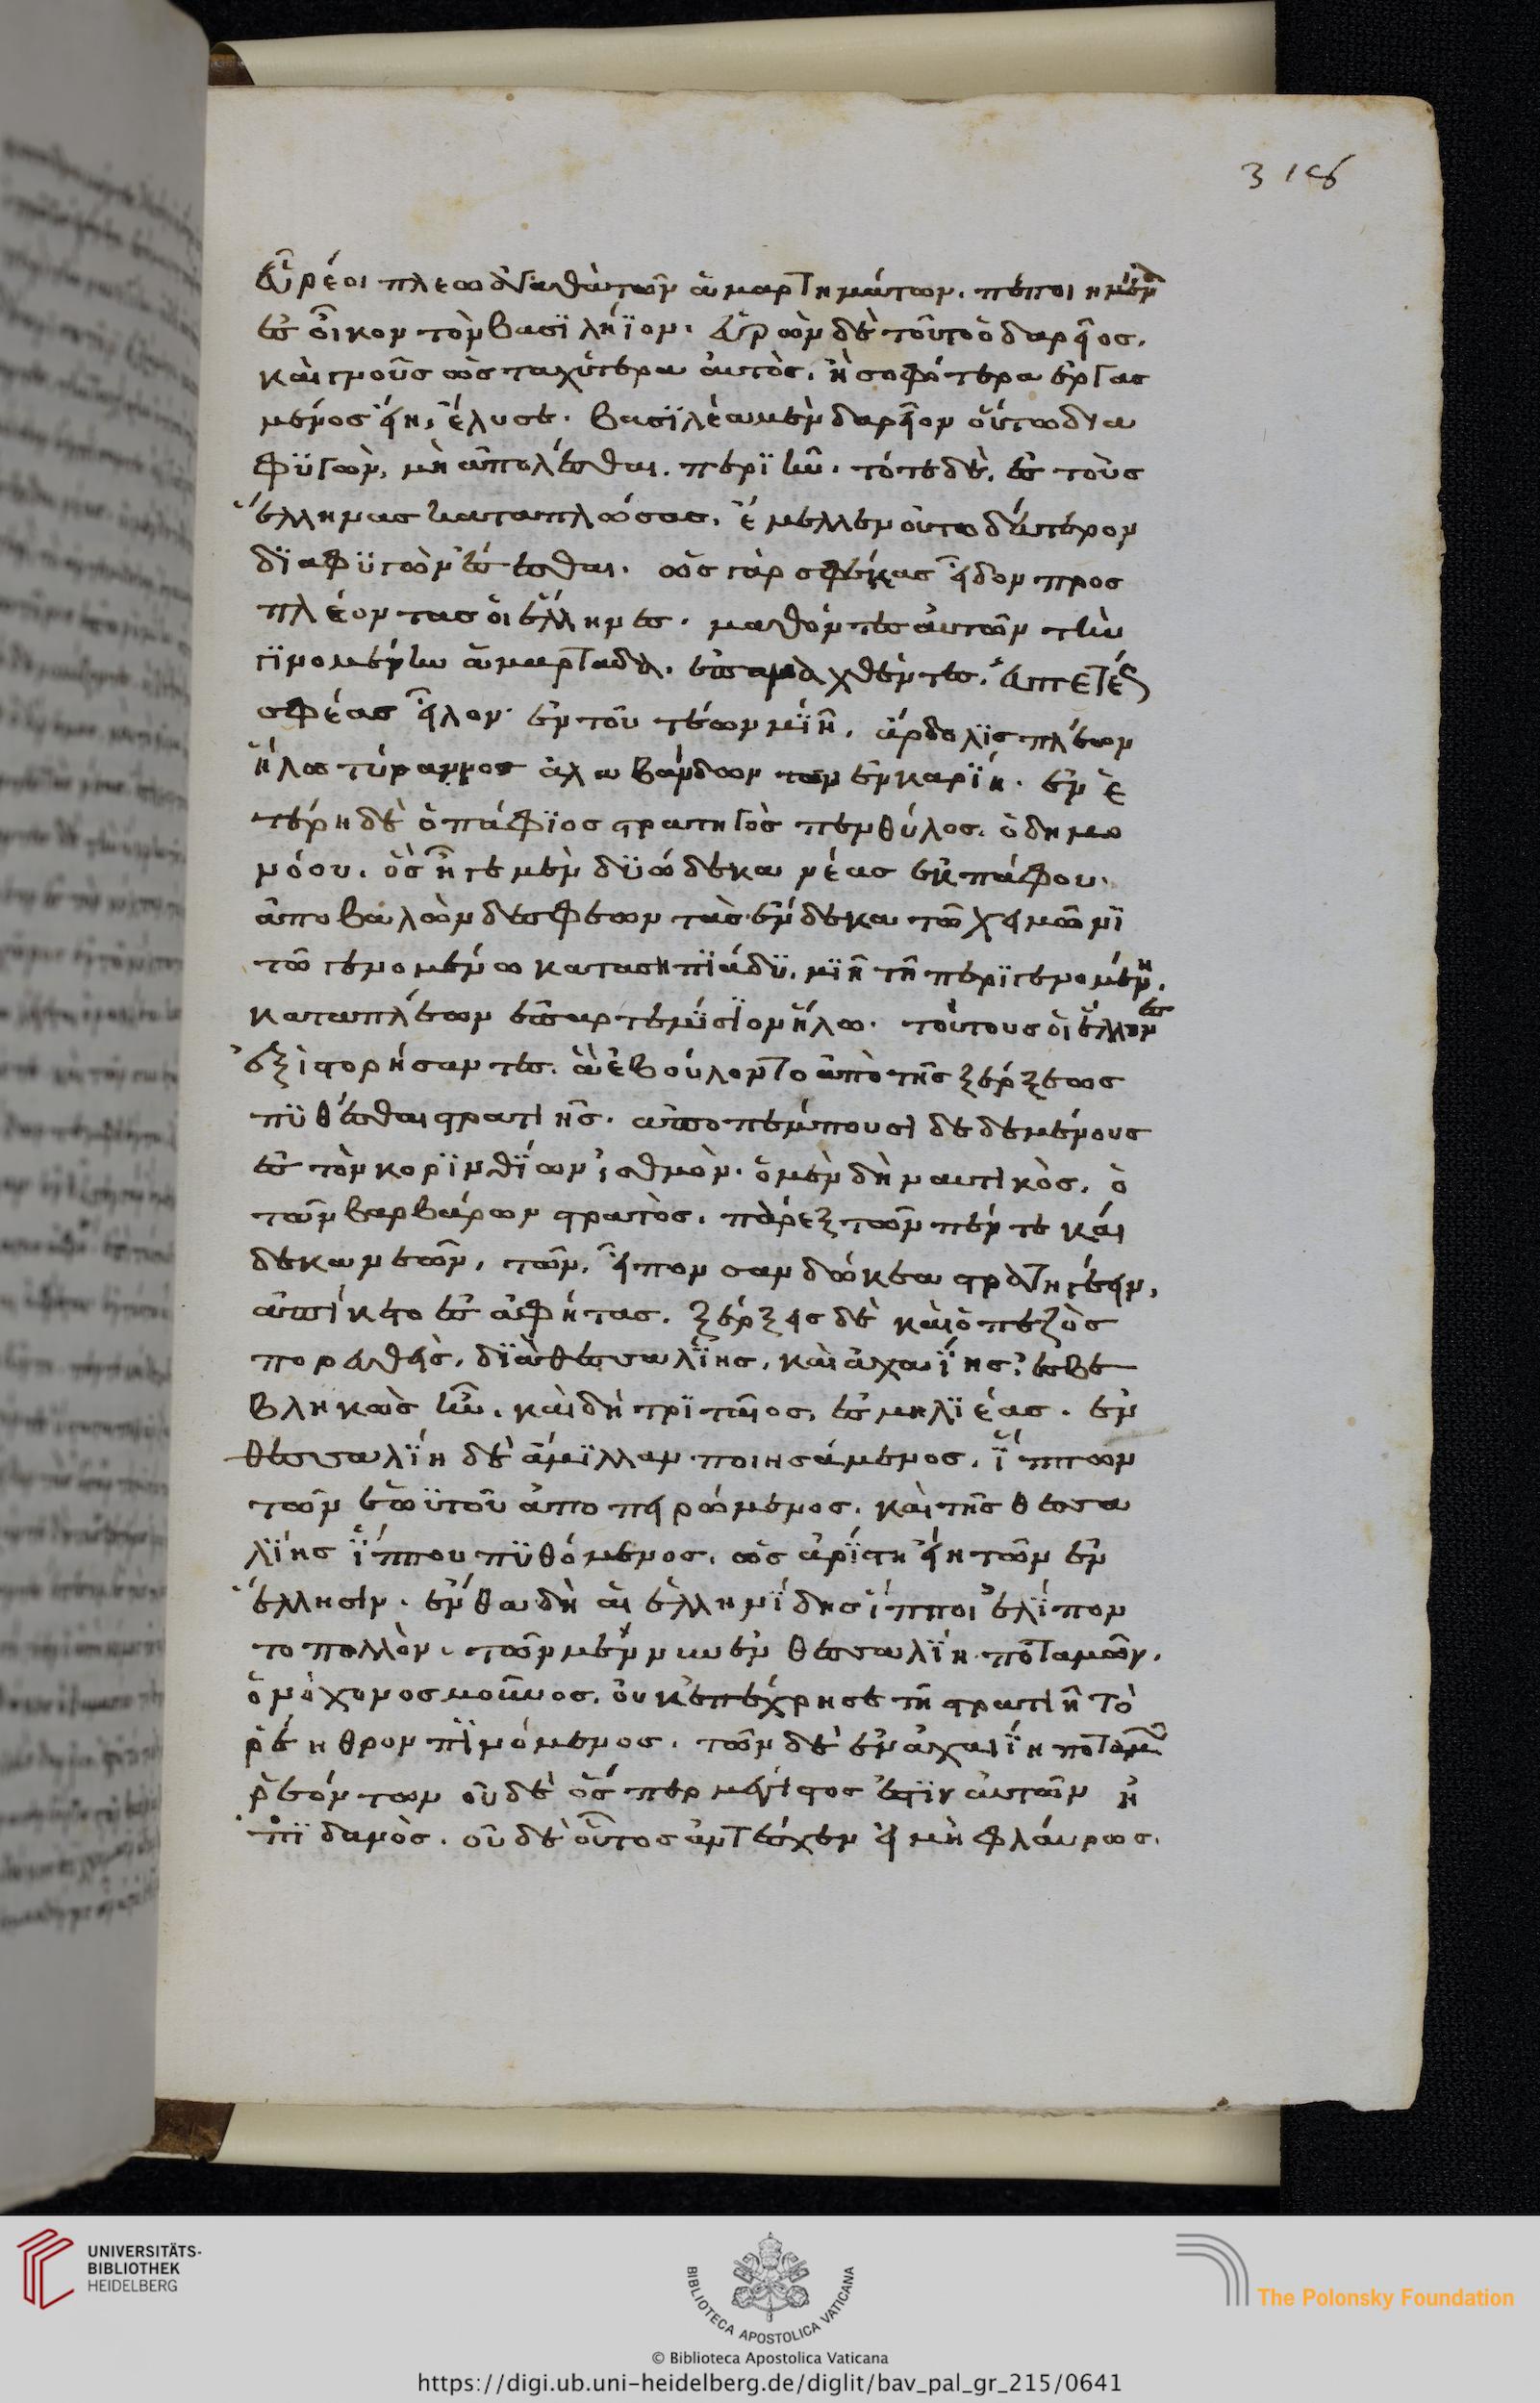 318
εὗρέοι πλέω ἀγαθὰ τῶν ἁμαρτημάτων. πεποιημένα
ἐς οἶκον τὸν βασιλήϊον. εὑρὼν δὲ τοῦτο ὁ δαρεῖος.
καὶ γνοὺς ὡς ταχύτερα αὐτὸς. ἢ σοφώτερα ἐργας
μένος εἴη, ἔλυσε. βασιλέα μὲν δαρεῖον οὕτω δια
φυγὼν, μὴ ἀπολέσθαι. περιῆν. τότε δὲ, ἐς τοὺς
ἕλληνας καταπλώσας, ἔμελλεν οὐ τὸ δεύτερον
διαφυγὼν ἔσεσθαι. ὡς γάρ σφέας εἶδον προς
πλέοντας οἱ ἕλληνες. μαθόντες αὐτῶν τὴν
γινομένην ἁμαρτάδα, ἐπαναχθέντες. εὐπετέως
σφέας εἷλον. ἐν τουτέων μιῆ, ἀρίδωλις πλέων
ἥλω τύραννος ἀλαβάνδων τῶν ἐν καρίη. ἐν ἑ
τέρη δὲ ὁ πάφιος στρατηγὸς πενθύλος. ὁ δημο
νόου. ὃς ἦγε μὲν δυώδεκα νέας ἐκ πάφου.
ἀποβαλὼν δέ σφεων τὰς ἕνδεκα τῶ χειμῶνι
τῶ γενομένω κατὰ σηπιάδι, μιῆ τῆ περιγενομένη.
καταπλέων ἐπ' ἀρτεμίσιον ἥλω. τούτους οἱ ἕλληνες
ἐξιστορήσαντες. ἃ ἐβούλοντο ἀπὸ τῆς ξέρξεως
πυθέσθαι στρατιῆς. ἀποπέμπουσι δεδεμένους
ἐς τὸν κορινθίων ἰσθμὸν. ὁ μὲν δὴ ναυτικὸς, ὁ
τῶν βαρβάρων στρατὸς, πάρεξ τῶν πέντε καὶ
δέκα νεῶν, τῶν, εἶπον σανδώκεα στρατηγέειν,
ἀπίκατο ἐς ἀφήτας. ξέρξης δὲ καὶ ὁ πεζὸς
πορευθεὶς, διὰ θεσσαλίης, καὶ ἀχαιΐης, ἐσβε
βληκὼς ἦν, καὶ δὴ τριταῖος, ἐς μηλιέας. ἐν
θεσσαλίη δὲ ἅμιλλαν ποιησάμενος, ἵππων
τῶν ἑωϋτοῦ ἀποπειρώμενος, καὶ τῆς θεσσα
λίης ἵππου πυθόμενος, ὡς ἀρίστη εἴη τῶν ἐν
ἕλλησιν. ἔνθα δὴ αἱ ἑλληνίδης ἵπποι ἐλίπον
το πολλὸν. τῶν μέν νυν ἐν θεσσαλίη ποταμῶν,
ὁ νόχονος μοῦνος, οὐκ ἐπέχρησε τῆ στρατιῆ τὸ
ῥέηθρον πινόμενος. τῶν δὲ ἐν ἀχαιΐη ποταμῶν
ῥεόντων οὐδὲ ὅσπερ μέγιστος ἐστὶν αὐτῶν ἠ
πιδανὸς. οὐδὲ οὗτος ἀντέσχεν εἰ μὴ φλάυρως.
UNIVERSITÄTS-
BIBLIOTHEK
HEIDELBERG
BIBLIOTECA APOSTOLICA VATICANA
The Polonsky Foundation
© Biblioteca Apostolica Vaticana
https://digi.ub.uni-heidelberg.de/diglit/bav_pal_gr_215/0641